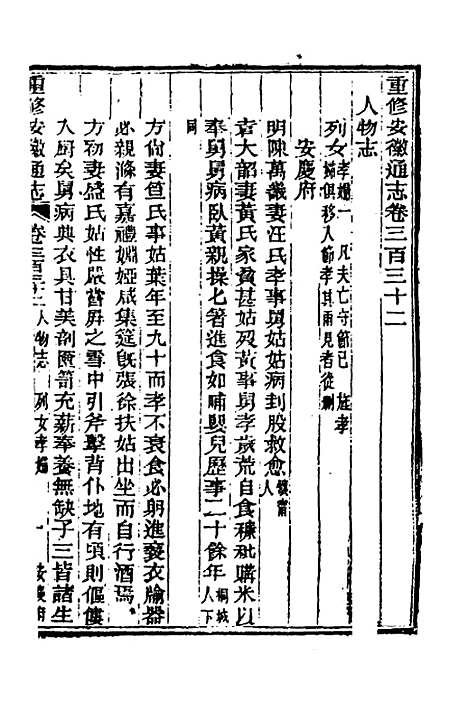 重修安徽通志卷三百三十二
人物志
列女孝婦一凡夫亡守節已旌孝
婦俱移入節孝其兩見者從刪
安慶府
明陳萬畿妻汪氏孝事舅姑姑病刲股救愈懷甯人
袁大韶妻黃氏家貧甚姑歿黃事舅孝歲荒自食糠秕購米以
奉舅舅病臥黃親操匕箸進食如哺嬰兒歷事二十餘年桐城人下
同
方尚妻查氏事姑葉年至九十而孝不衰食必躬進褻衣牏器
必親滌有嘉禮姻婭咸集筵旣張徐扶姑出坐而自行酒焉
方物妻盛氏姑性嚴嘗屏之雪中引斧擊背仆地有頃則傴僂
入廚矣舅病典衣具甘美剖匲笥充薪奉養無缺子三皆諸生
重修安徽通志 卷三百三十二人物志 列女孝婦 一 安慶府